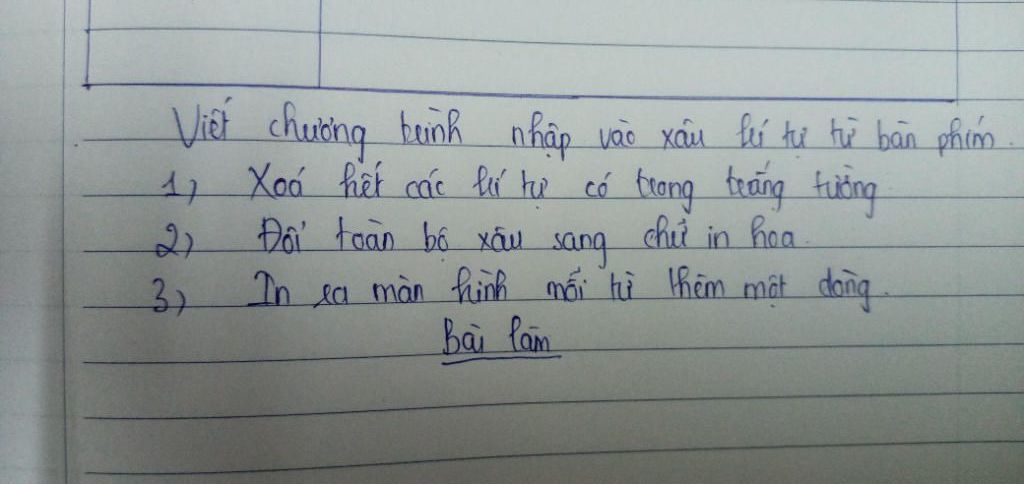 Viết chương trình nhập vào xâu kí tự từ bàn phím.
1) Xoá hết các kí tự có trong trắng tường
2) Đổi toàn bộ xâu sang chữ in hoa.
3) In ra màn hình mỗi từ thêm một dòng.
Bài làm